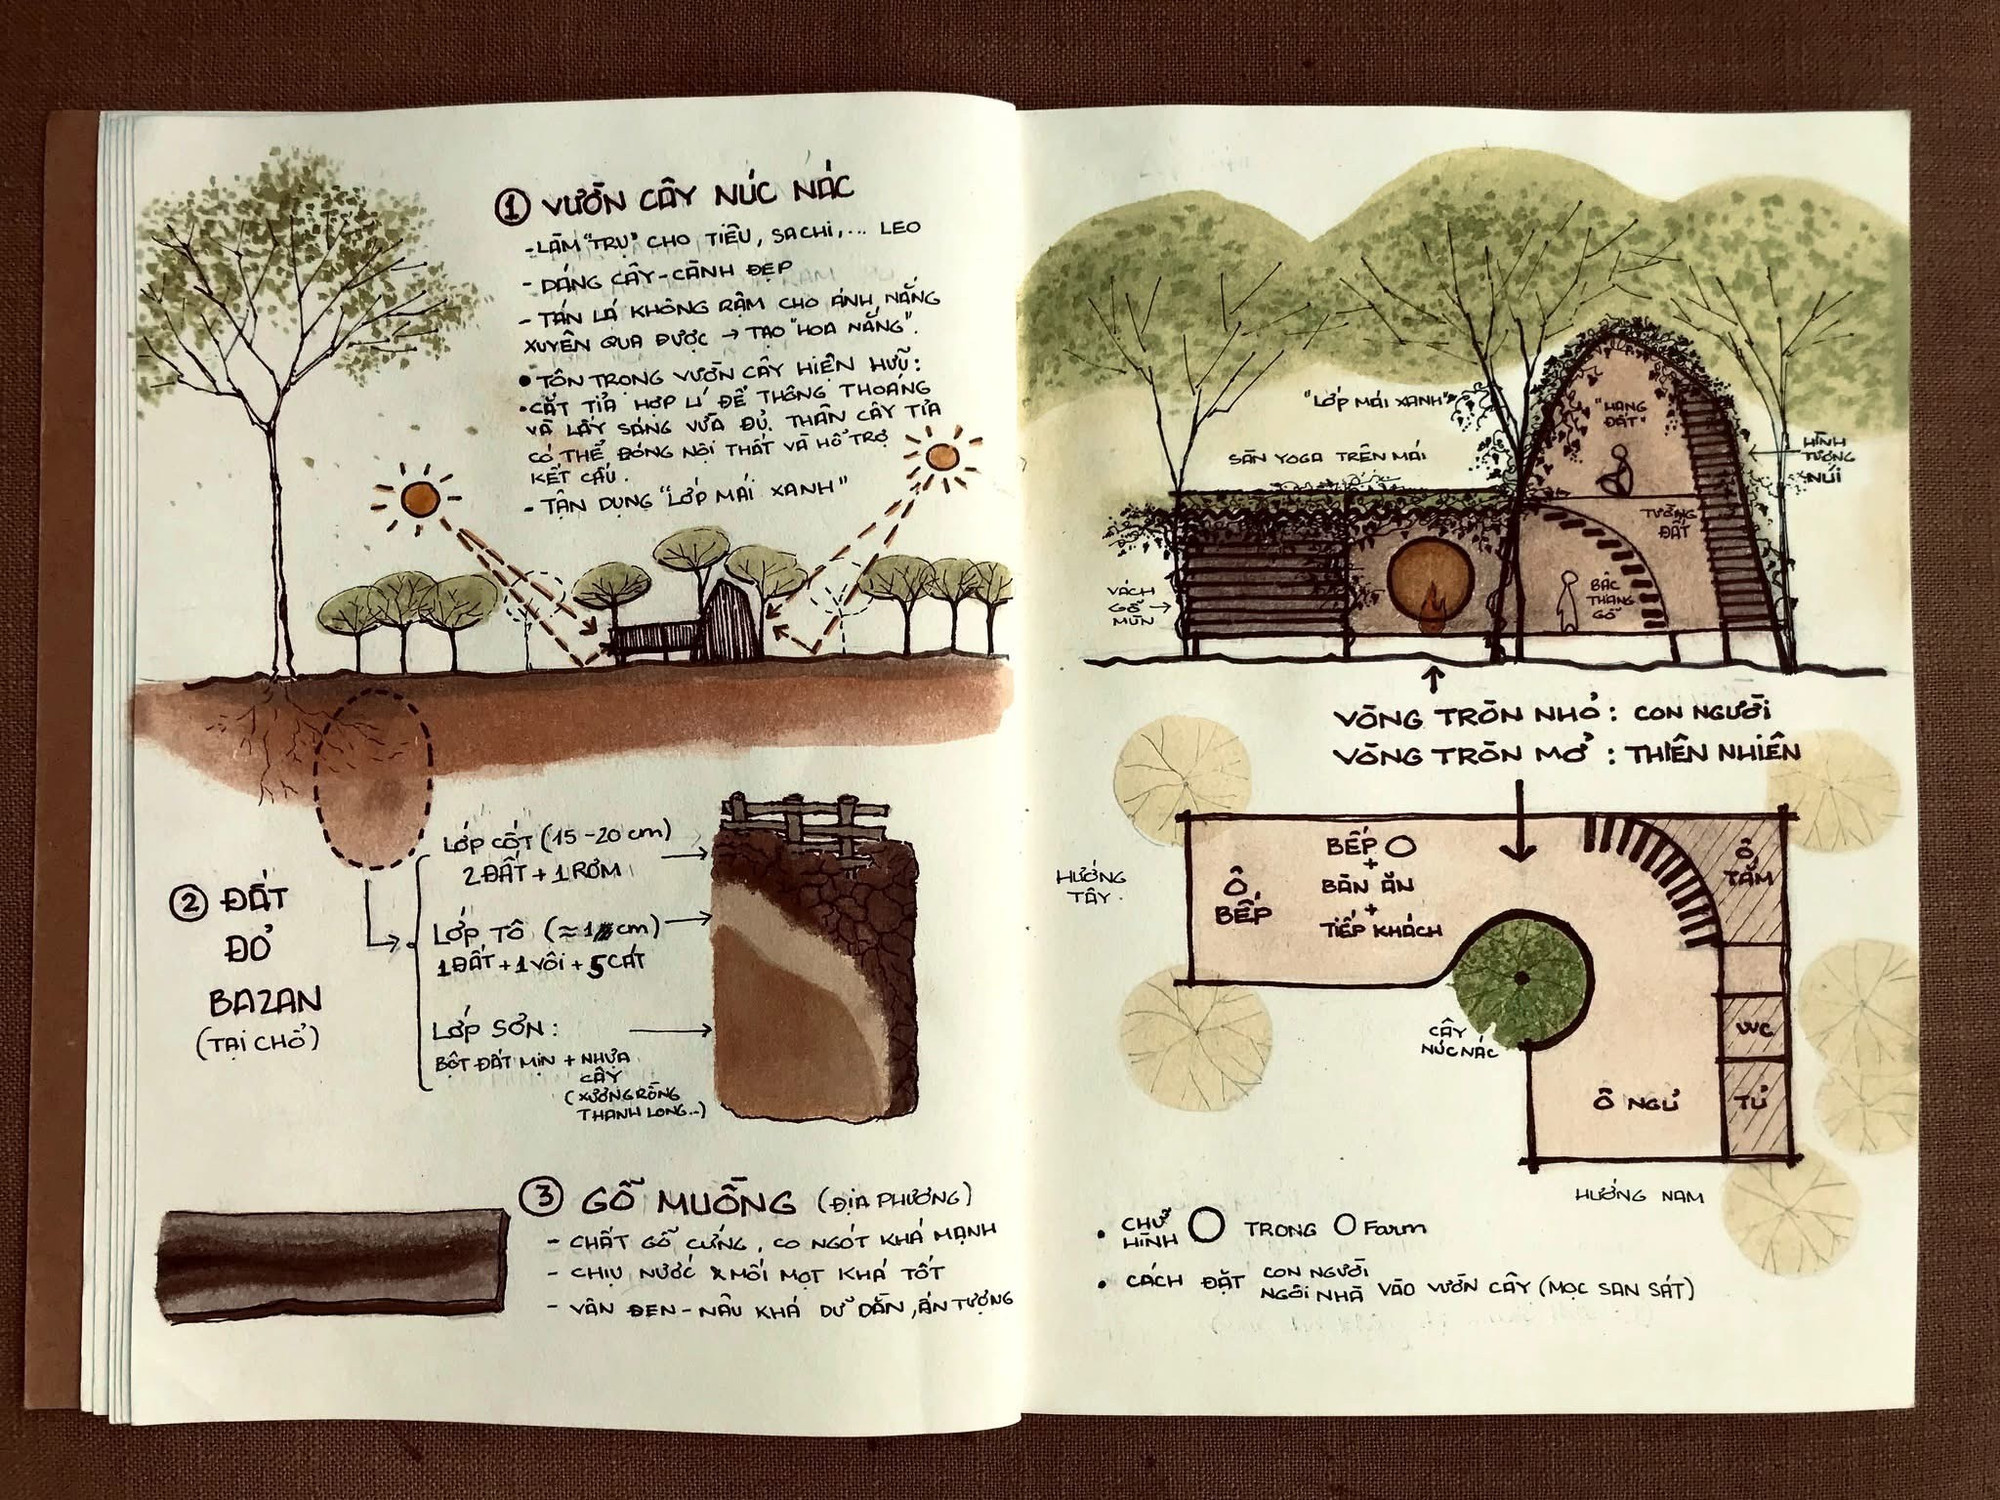 ① VƯỜN CÂY NÚC NÁC
- LÀM "TRỤ" CHO TIÊU, SACHI,... LEO
- DÁNG CÂY - CÀNH ĐẸP
- TÁN LÁ KHÔNG RẬM CHO ÁNH NẮNG
XUYÊN QUA ĐƯỢC → TẠO "HOA NẮNG".
• TÔN TRỌNG VƯỜN CÂY HIỆN HỮU:
• CẮT TỈA HỢP LÍ ĐỂ THÔNG THOÁNG
VÀ LẤY SÁNG VỪA ĐỦ. THÂN CÂY TỈA
CÓ THỂ ĐÓNG NỘI THẤT VÀ HỖ TRỢ
KẾT CẤU.
- TẬN DỤNG "LỚP MÁI XANH"
② ĐẤT
ĐỎ
BAZAN
(TẠI CHỖ)
LỚP CỐT (15-20 cm)
2 ĐẤT + 1 RƠM
LỚP TÔ (≈ 1 cm)
1 ĐẤT + 1 VÔI + 5 CÁT
LỚP SƠN:
BỘT ĐẤT MỊN + NHỰA
CÂY
(XƯƠNG RỒNG
THANH LONG...)
③ GỖ MUỒNG (ĐỊA PHƯƠNG)
- CHẤT GỖ CỨNG, CO NGÓT KHÁ MẠNH
- CHỊU NƯỚC & MỐI MỌT KHÁ TỐT
- VÂN ĐEN - NÂU KHÁ DỮ DẰN, ẤN TƯỢNG
"LỚP MÁI XANH"
"HANG
ĐẤT"
HÌNH
TƯỢNG
NÚI
SÂN YOGA TRÊN MÁI
TƯỜNG
ĐẤT
VÁCH
GỖ
MÙN
BẬC
THANG
GỖ
VÒNG TRÒN NHỎ: CON NGƯỜI
VÒNG TRÒN MỞ: THIÊN NHIÊN
HƯỚNG
TÂY.
Ô
BẾP
BẾP O
+
BÀN ĂN
+
TIẾP KHÁCH
Ô
TẮM
CÂY
NÚC NÁC
WC
Ô NGỦ
TỦ
HƯỚNG NAM
• CHỮ
HÌNH O TRONG O Farm
• CÁCH ĐẶT CON NGƯỜI
NGÔI NHÀ VÀO VƯỜN CÂY (MỌC SAN SÁT)